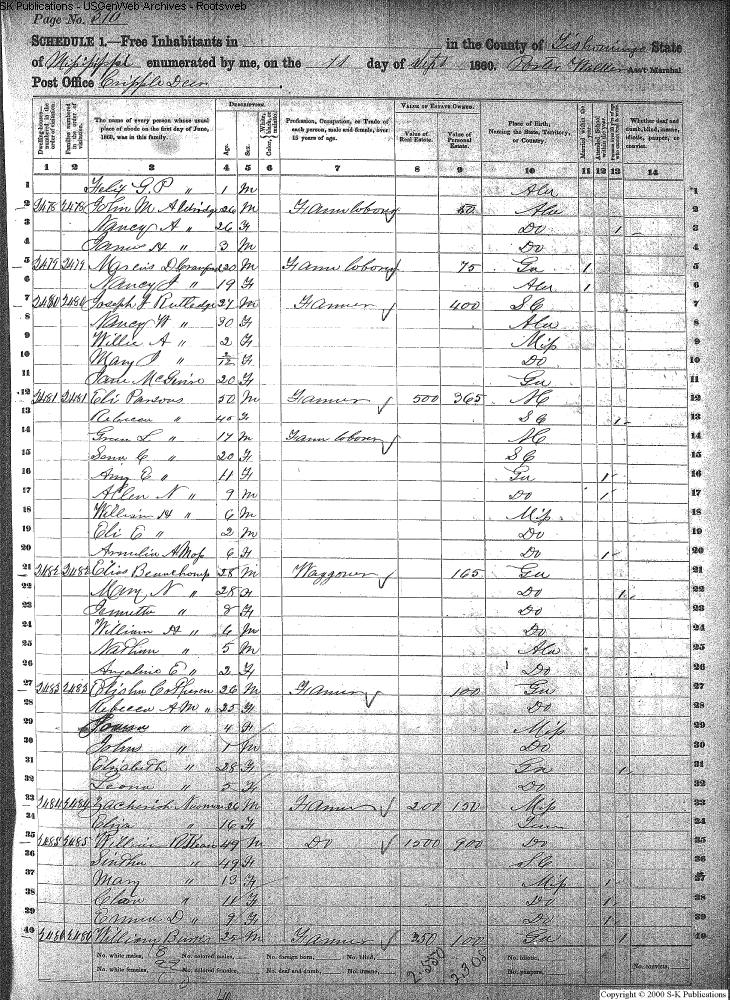 SK Publications - USGenWeb Archives - Rootsweb
Page No. 310
SCHEDULE 1.—Free Inhabitants in in the County of Tishomingo State
of Mississippi enumerated by me, on the 11 day of Sept 1860. Porter Walker Ass't Marshal
Post Office Cripple Deer
DESCRIPTION. VALUE OF ESTATE OWNED.
Dwelling-houses—numbered in the order of visitation. Families numbered in the order of visitation. The name of every person whose usual place of abode on the first day of June, 1860, was in this family. Age. Sex. Color, White, black, or mulatto. Profession, Occupation, or Trade of each person, male and female, over 15 years of age. Value of Real Estate. Value of Personal Estate. Place of Birth, Naming the State, Territory, or Country. Married within the year. Attended School within the year. Whether deaf and dumb, blind, insane, idiotic, pauper, or convict.
1 2 3 4 5 6 7 8 9 10 11 12 13 14
1 Felix G. P " 1 M Ala 1
2 2478 2478 John M Aldridge 26 M Farm laborer 50 Ala 2
3 Nancy A " 26 F Do 1 3
4 James H " 3 M Do 4
5 2479 2479 Marcus D Crawford 20 M Farm laborer 75 Ga 1 5
6 Nancy J " 19 F Ala 1 6
7 2480 2480 Joseph J Rutledge 27 M Farmer 400 S C 7
8 Nancy W " 30 F Ala 8
9 Willie A " 2 F Miss 9
10 Mary J " 2/12 F Do 10
11 Jane McGuire 20 F Ga 11
12 2481 2481 Eli Parsons 50 M Farmer 500 365 N C 12
13 Rebecca " 40 F S C 1 13
14 Green L " 17 M Farm laborer N C 14
15 C " 20 F S C 15
16 Amy E " 11 F Ga 1 16
17 Allen N " 9 M Do 1 17
18 William H " 6 M Miss 18
19 Eli E " 2 M Do 19
20 A Moss 6 F Do 1 20
21 2482 2482 Elias Beauchamp 28 M Waggoner 165 Ga 21
22 Mary N " 28 F Do 1 22
23 " 8 F Do 23
24 William H " 6 M Do 24
25 Nathan " 5 M Ala 25
26 Angeline E " 2 F Do 26
27 2483 2483 Elisha 26 M Farmer 100 Ga 27
28 Rebecca A M " 25 F Do 28
29 " 4 F Miss 29
30 John " 1 M Do 30
31 Elizabeth " 28 F Ga 1 31
32 Leona " 5 F Do 32
33 2484 2484 26 M Farmer 200 150 Miss 33
34 Eliza " 16 F Tenn 34
35 2485 2485 William 49 M Do 1500 900 Do 35
36 " 49 F S C 36
37 Mary " 13 F Miss 1 37
38 " 11 F Do 1 38
39 Emma D " 9 F Do 1 39
40 2486 2486 William 25 M Farmer 350 100 Ga 1 40
No. white males, No. colored males, No. foreign born, No. blind, No. idiotic,
No. white females, No. colored females, No. deaf and dumb, No. insane, No. paupers, No. convicts,
2,550
Copyright © 2000 S-K Publications